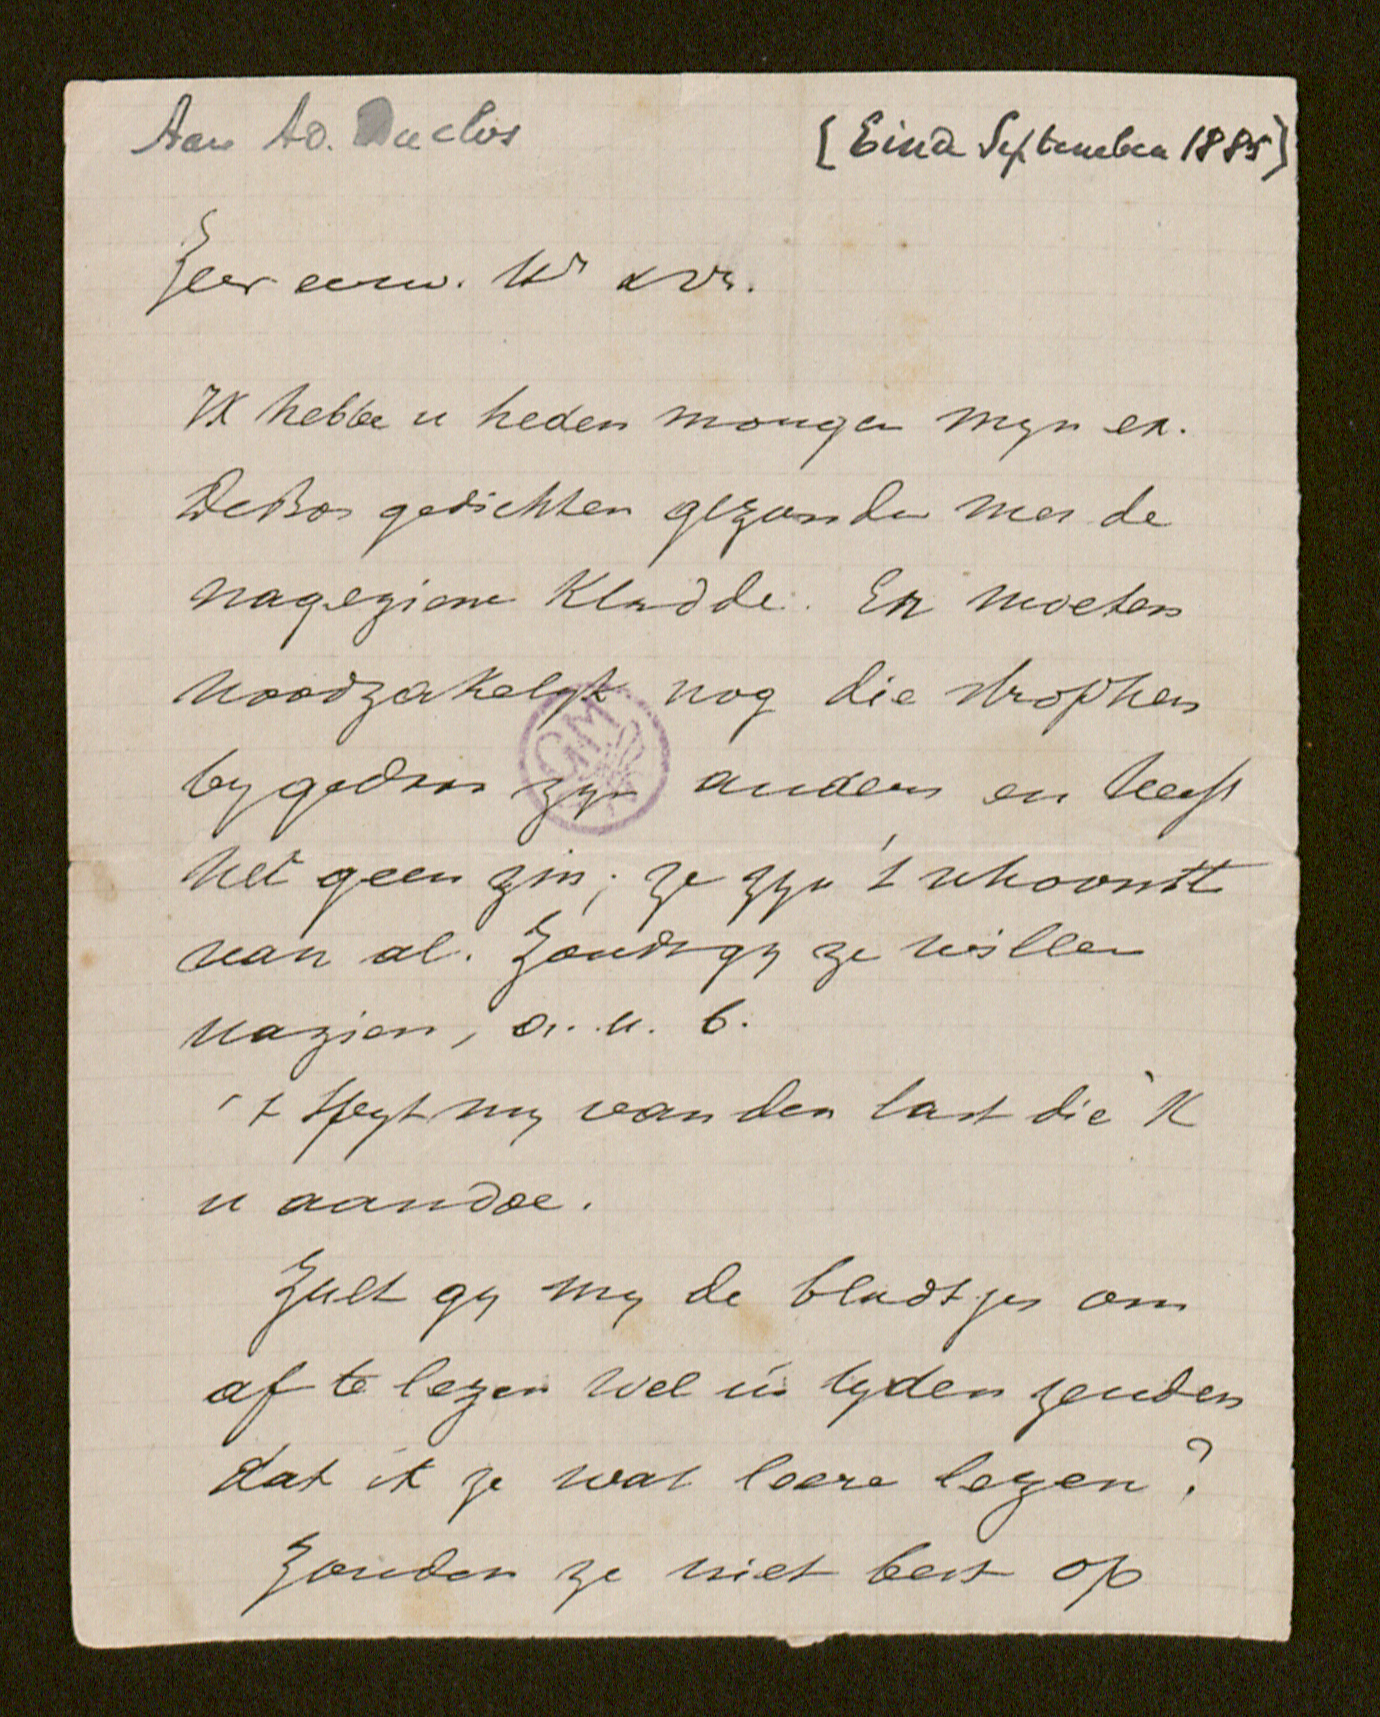 Aan Ad. Duclos
[Eind September 1885]
Zeer eerw. Hr
Ik hebbe u heden morgen myn en.
DeBos gedichten gezonden met de
nageziene Kladde. Er moeten
noodzakelyk nog die strophen
bygedaan zyn anders en heeft
het geen zin; ze zyn 't schoonste
van al. Zoudt gy ze willen
nazien, a. u. b.
GM
't Spyt my van den last die 'k
u aandoe.
Zult gy my de bladtjes om
af te lezen wel in tyden zenden
dat ik ze wat leere lezen?
Zouden ze niet best op